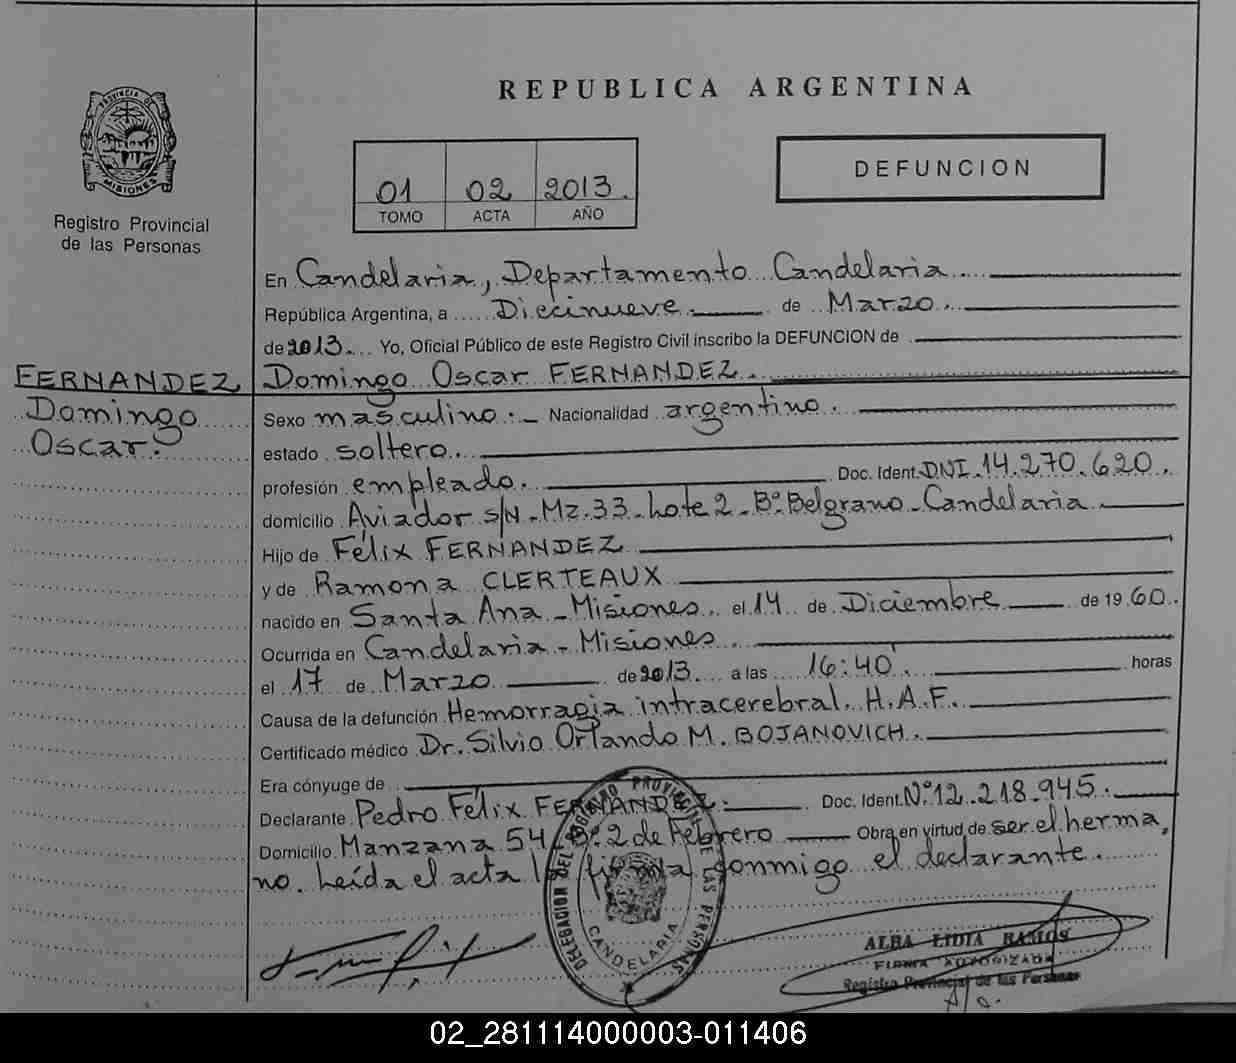 PROVINCIA DE
MISIONES
Registro Provincial
de las Personas
REPUBLICA ARGENTINA
01 02 2013.
TOMO ACTA AÑO
DEFUNCION
En Candelaria, Departamento Candelaria
República Argentina, a Diecinueve de Marzo
de 2013. Yo, Oficial Público de este Registro Civil inscribo la DEFUNCION de
FERNANDEZ Domingo Oscar FERNANDEZ.
Domingo
Oscar.
Sexo masculino. Nacionalidad argentino.
estado soltero.
profesión empleado. Doc. Ident. DNI. 14.270.620.
domicilio Aviador s/N - Mz. 33 - Lote 2 - Bº Belgrano - Candelaria
Hijo de Félix FERNANDEZ
y de Ramona CLERTEAUX
nacido en Santa Ana - Misiones. el 14 de Diciembre de 19 60.
Ocurrida en Candelaria - Misiones
el 17 de Marzo de 2013 a las 16:40 horas
Causa de la defunción Hemorragia intracerebral. H.A.F.
Certificado médico Dr. Silvio Orlando M. BOJANOVICH.
Era cónyuge de
Declarante Pedro Félix FERNANDEZ. Doc. Ident. Nº 12.218.945.
Domicilio Manzana 54 Bº 2 de Febrero Obra en virtud de ser el herma,
no. Leída el acta la firma conmigo el declarante.
DELEGACION DEL REGISTRO PROVINCIAL DE LAS PERSONAS
CANDELARIA
ALBA LIDIA RAMOS
FIRMA AUTORIZADA
Registro Provincial de las Personas
02_281114000003-011406